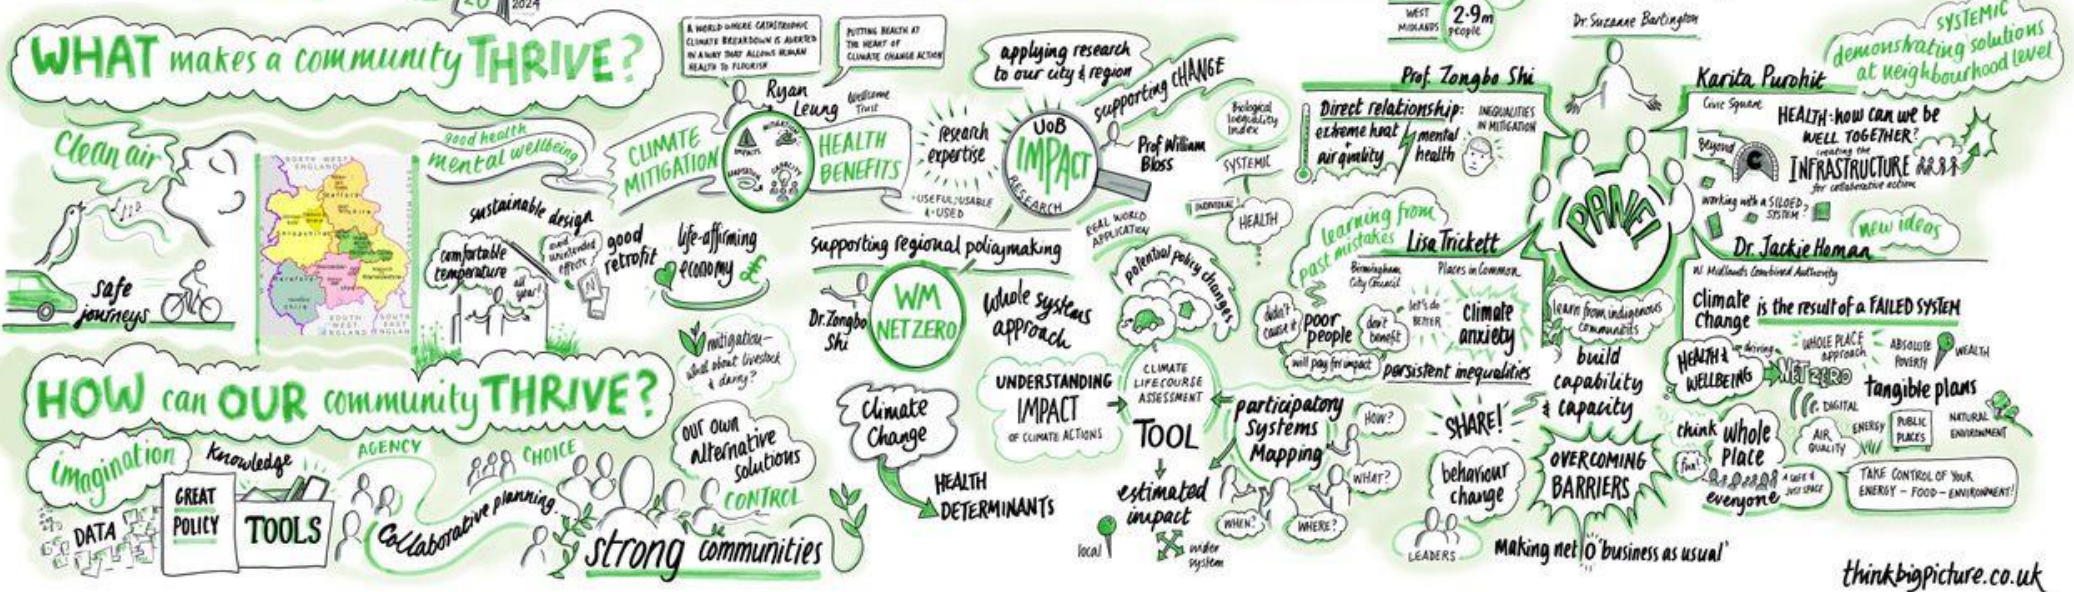 20
2024
WHAT makes a community THRIVE?
Clean air
safe
journeys
good health
mental wellbeing
sustainable design
comfortable
temperature
all
year!
avoid
unintended
effects
good
retrofit
life-affirming
economy £
mitigation -
what about livestock
& dairy?
HOW can OUR community THRIVE?
imagination
Knowledge
DATA
GREAT
POLICY
TOOLS
AGENCY
CHOICE
Collaborative planning
our own
alternative
solutions
CONTROL
strong communities
A WORLD WHERE CATASTROPHIC
CLIMATE BREAKDOWN IS AVERTED
IN A WAY THAT ALLOWS HUMAN
HEALTH TO FLOURISH
PUTTING HEALTH AT
THE HEART OF
CLIMATE CHANGE ACTION
Ryan
Leung
Wellcome
Trust
CLIMATE
MITIGATION
MITIGATION
IMPACTS
ADAPTATION
HEALTH
BENEFITS
applying research
to our city & region
research
expertise
• USEFUL, USABLE
& • USED
UoB
IMPACT
RESEARCH
supporting CHANGE
Prof William
Bloss
REAL WORLD
APPLICATION
Biological
Inequality
Index
SYSTEMIC
INDIVIDUAL
HEALTH
supporting regional policymaking
Dr. Zongbo
Shi
WM
NET ZERO
whole systems
approach
potential policy changes
Climate
Change
HEALTH
DETERMINANTS
UNDERSTANDING
IMPACT
OF CLIMATE ACTIONS
CLIMATE
LIFECOURSE
ASSESSMENT
TOOL
estimated
impact
local
wider
system
participatory
Systems
Mapping
HOW?
WHAT?
WHEN?
WHERE?
WEST
MIDLANDS
2.9m
people
Prof. Zongbo Shi
Direct relationship:
extreme heat
+
air quality
mental
health
INEQUALITIES
IN MITIGATION
learning from
past
mistakes
Lisa Trickett
Birmingham
City Council
Places in Common
didn't
cause it
poor
people
don't
benefit
will pay for impact
let's do
BETTER
climate
anxiety
persistent inequalities
SHARE!
behaviour
change
LEADERS
Dr. Suzanne Bartington
PANEL
learn from indigenous
communities
build
capability
& capacity
OVERCOMING
BARRIERS
making net 0 'business as usual'
Karita Purohit
Civic Square
SYSTEMIC
demonstrating solutions
at neighbourhood level
HEALTH: how can we be
WELL TOGETHER?
Beyond
creating the
INFRASTRUCTURE
for collaborative action
working with a SILOED
SYSTEM?
new ideas
Dr. Jackie Homan
W. Midlands Combined Authority
Climate
Change
is the result of a FAILED SYSTEM
HEALTH &
WELLBEING
driving
NET ZERO
WHOLE PLACE
approach
ABSOLUTE
POVERTY
WEALTH
tangible plans
DIGITAL
AIR
QUALITY
ENERGY
PUBLIC
PLACES
NATURAL
ENVIRONMENT
think whole
Place
fun!
everyone
A SAFE &
JUST SPACE
TAKE CONTROL OF YOUR
ENERGY - FOOD - ENVIRONMENT!
thinkbigpicture.co.uk